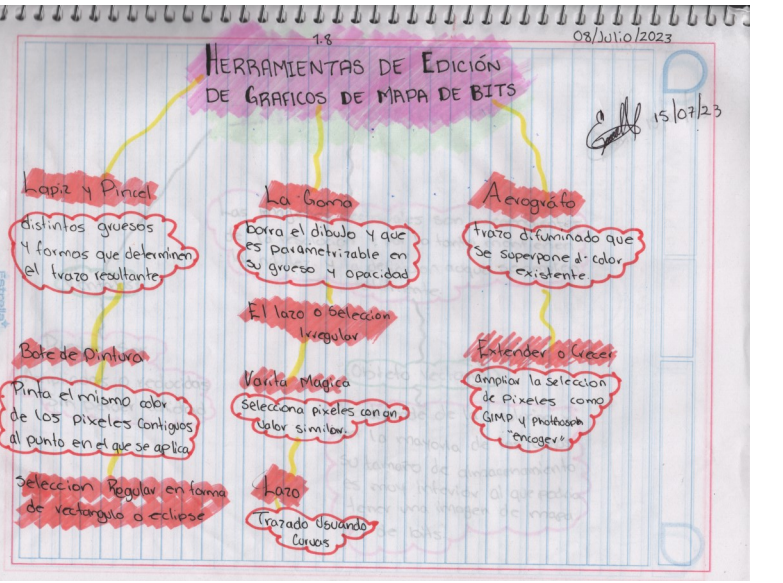 1.8
08/Julio/2023
HERRAMIENTAS DE EDICIÓN
DE GRAFICOS DE MAPA DE BITS
15/07/23
Lapiz y Pincel
distintos gruesos
y formas que determinen
el trazo resultante
Bote de Pintura
Pinta el mismo color
de los pixeles contiguos
al punto en el que se aplica
Seleccion Regular en forma
de rectangulo o eclipse
La Goma
borra el dibujo y que
es parametrizable en
su grueso y opacidad
El lazo o Seleccion
Irregular
Varita Magica
Selecciona pixeles con un
valor similar.
Lazo
Trazado Usuando
Curvas
Aerográfo
trazo difuminado que
se superpone al color
existente.
Extender o Crecer
ampliar la seleccion
de pixeles como
GIMP y
"encoger"